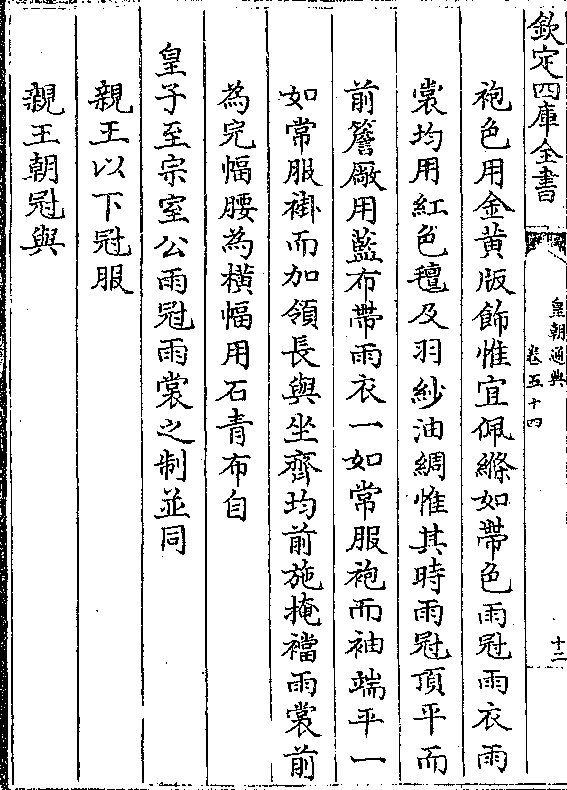 欽定四庫全書
皇朝通典
卷五十四
十二
袍色用金黃版飾惟宜佩絛如帶色雨冠雨衣雨
裳均用紅色氊及羽紗油綢惟其時雨冠頂平而
前簷廠用藍布帶雨衣一如常服袍而袖端平一
如常服褂而加領長與坐齊均前施掩襠雨裳前
為完幅腰為橫幅用石青布自
皇子至宗室公雨冠雨裳之制並同
親王以下冠服
親王朝冠與